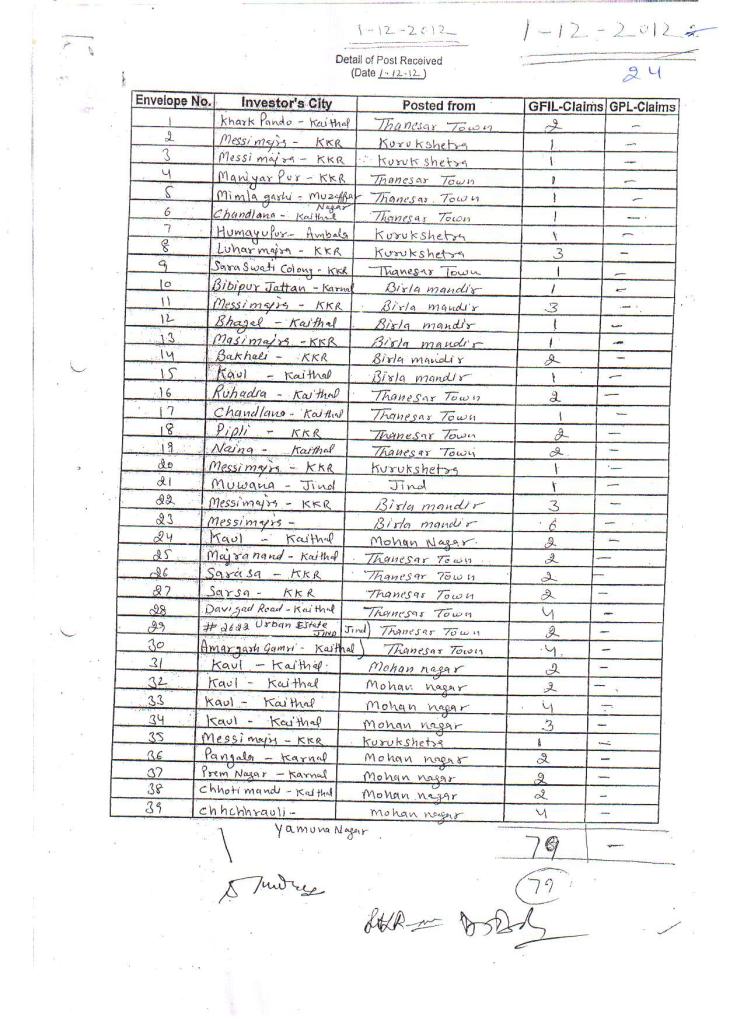 1-12-2012
1-12-2012
Detail of Post Received
(Date 1-12-12)
24
Envelope No. Investor's City Posted from GFIL-Claims GPL-Claims
1 Khark Pando - Kaithal Thanesar Town 2 -
2 Messi majra - KKR Kurukshetra 1 -
3 Messi majra - KKR Kurukshetra 1 -
4 Maniyar Pur - KKR Thanesar Town 1 -
5 Mimla garhi - Muzaffar Nagar Thanesar Town 1 -
6 Chandlana - Kaithal Thanesar Town 1 -
7 Humayupur - Ambala Kurukshetra 1 -
8 Luharmajra - KKR Kurukshetra 3 -
9 SaraSwati Colony - KKR Thanesar Town 1 -
10 Bibipur Jattan - Karnal Birla mandir 1 -
11 Messimajra - KKR Birla mandir 3 -
12 Bhagal - Kaithal Birla mandir 1 -
13 Masimajra - KKR Birla mandir 1 -
14 Bakhali - KKR Birla mandir 2 -
15 Kaul - Kaithal Birla mandir 1 -
16 Ruhadra - Kaithal Thanesar Town 2 -
17 Chandlana - Kaithal Thanesar Town 1 -
18 Pipli - KKR Thanesar Town 2 -
19 Naina - Kaithal Thanesar Town 2 -
20 Messimajra - KKR Kurukshetra 1 -
21 Muwana - Jind Jind 1 -
22 Messimajra - KKR Birla mandir 3 -
23 Messimajra - Birla mandir 6 -
24 Kaul - Kaithal Mohan Nagar 2 -
25 Majra nand - Kaithal Thanesar Town 2 -
26 Sarasa - KKR Thanesar Town 2 -
27 Sarsa - KKR Thanesar Town 2 -
28 Davigad Road - Kaithal Thanesar Town 4 -
29 # 2622 Urban Estate Jind Jind) Thanesar Town 2 -
30 Amargarh Gamri - Kaithal) Thanesar Town 4 -
31 Kaul - Kaithal Mohan nagar 2 -
32 Kaul - Kaithal Mohan nagar 2 -
33 Kaul - Kaithal Mohan nagar 4 -
34 Kaul - Kaithal Mohan nagar 3 -
35 Messimajra - KKR Kurukshetra 1 -
36 Pangala - Karnal Mohan nagar 2 -
37 Prem Nagar - Karnal Mohan nagar 2 -
38 Chhoti mandi - Kaithal Mohan nagar 2 -
39 Chhchhrauli - Mohan nagar 4 -
Yamuna Nagar
79 -
79